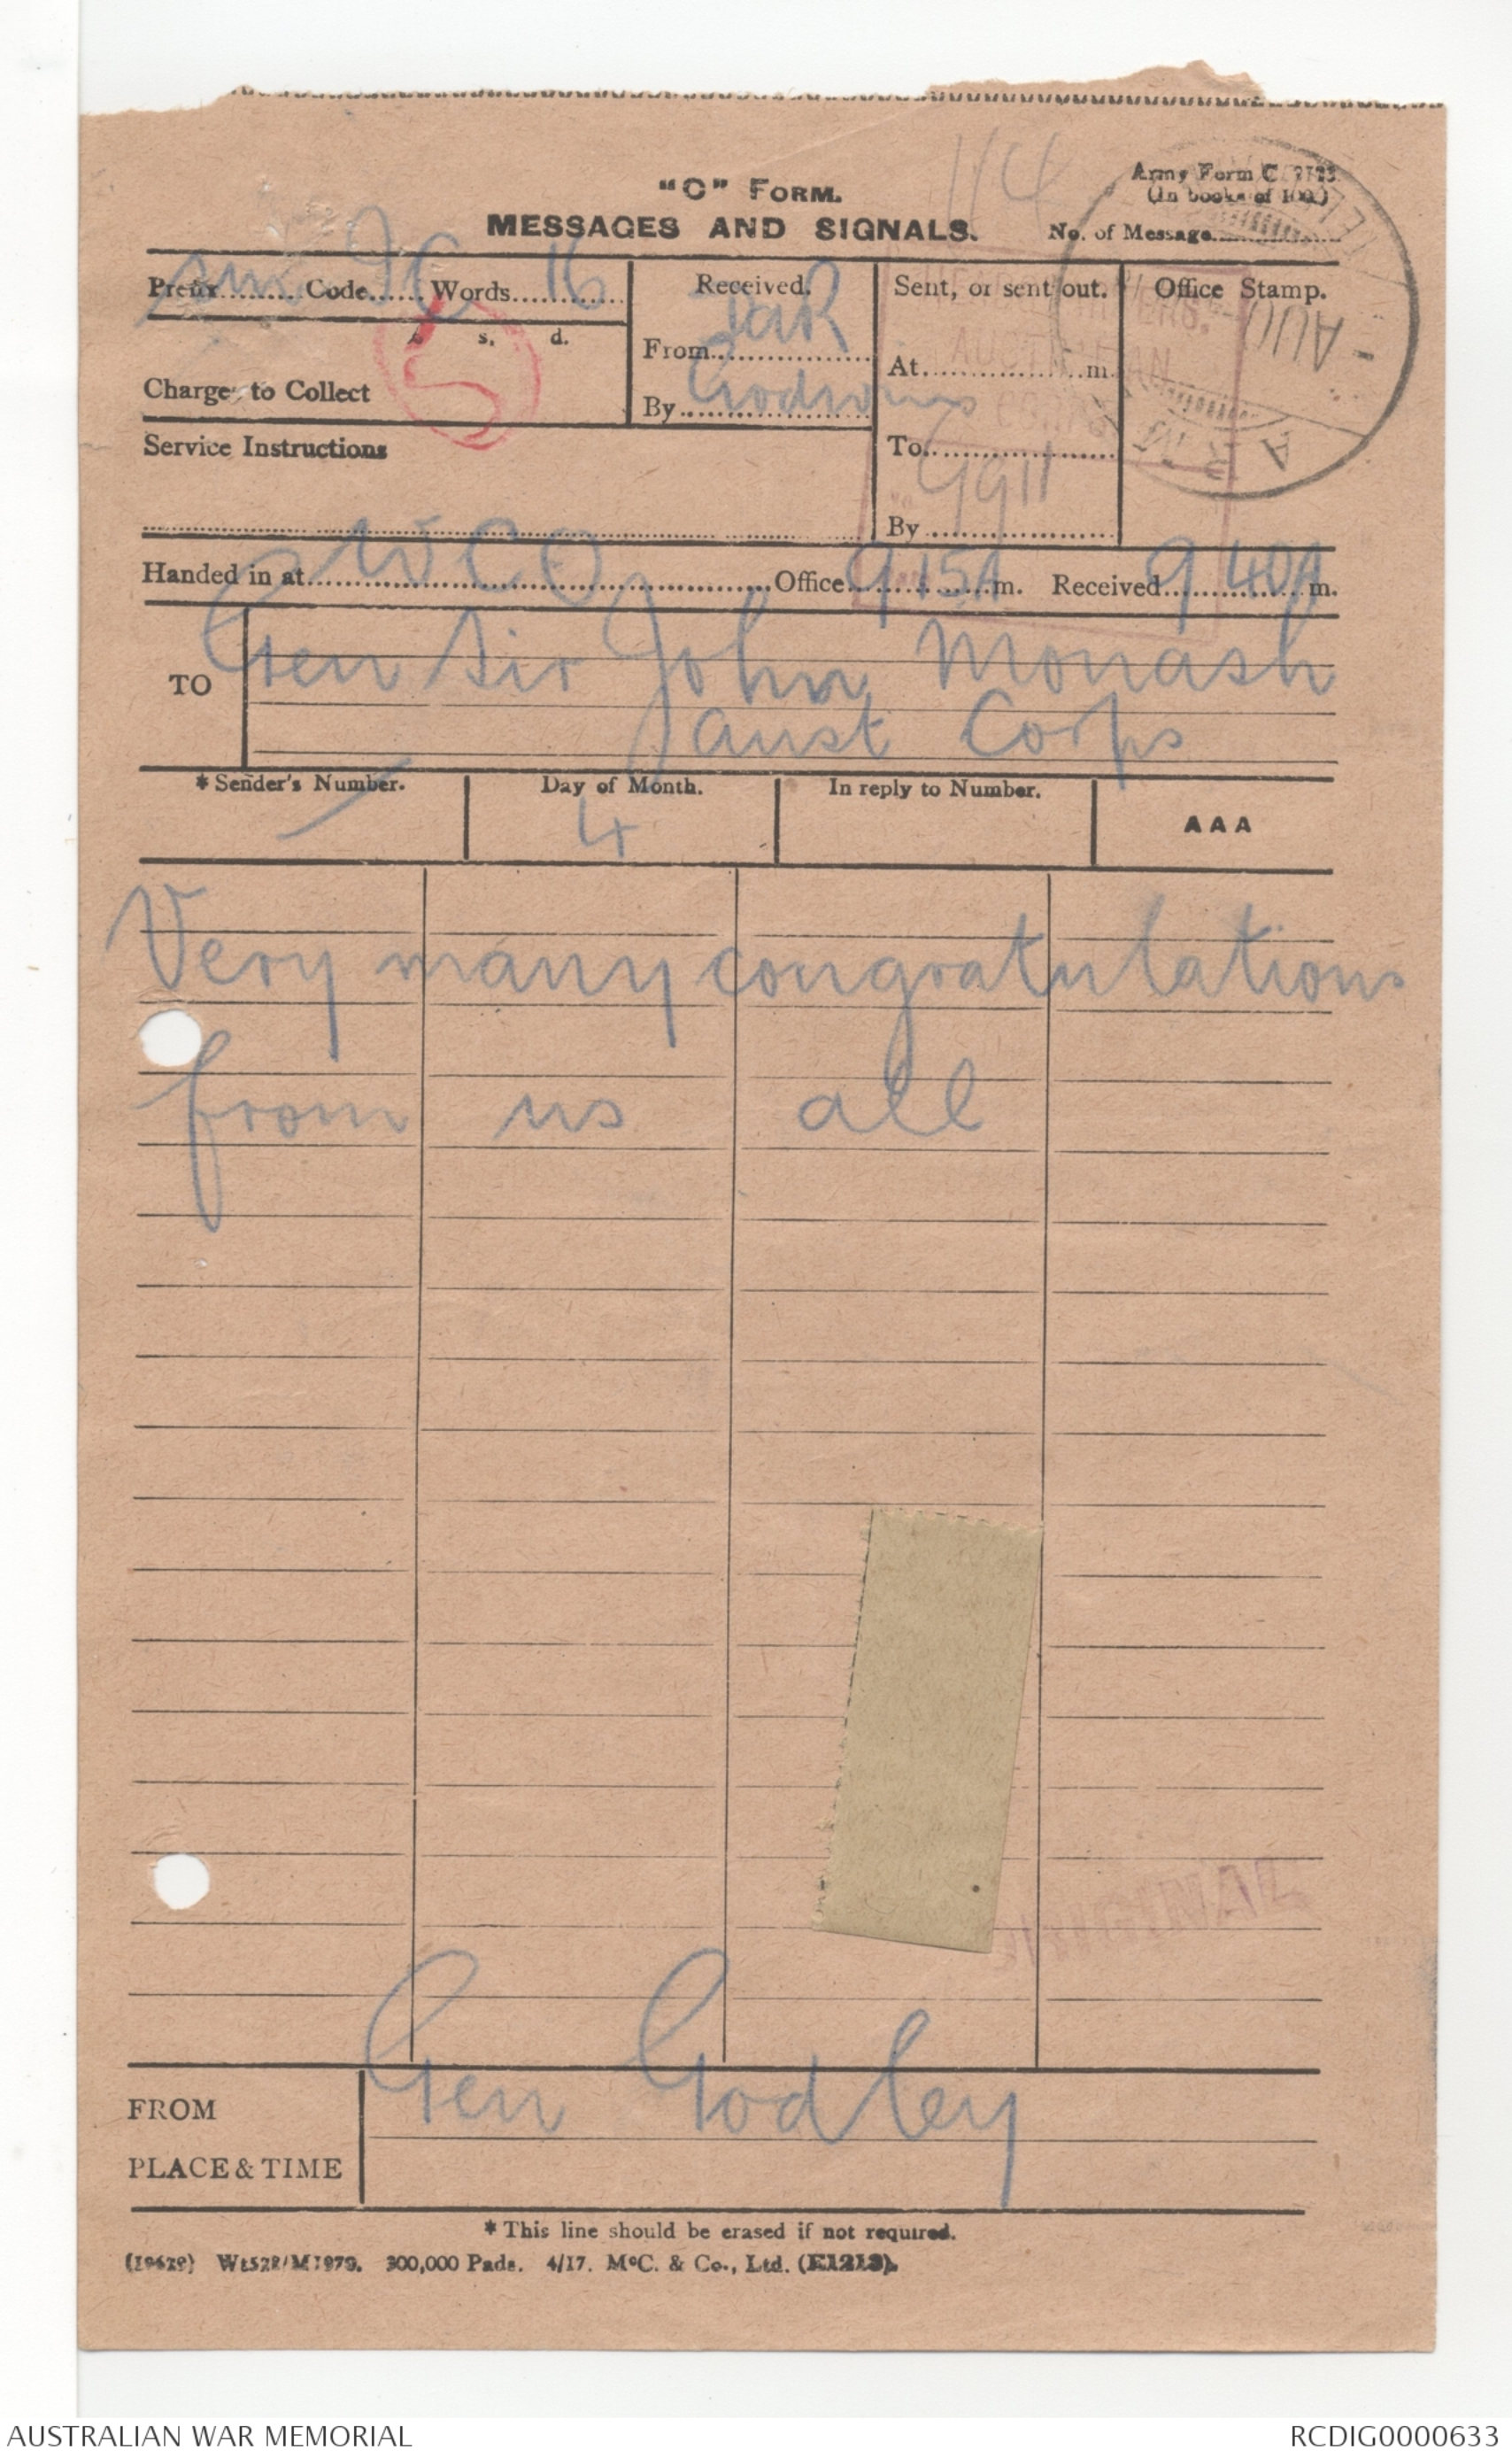 114
Army Form C. 2123.
(In books of 100.)
"C" FORM.
MESSAGES AND SIGNALS.
No. of Message
Prefix Sm Code Words 16
Received.
Sent, or sent out.
Office Stamp.
£ s. d.
From
Charges to Collect
At m.
By
Service Instructions
To
By
Handed in at WCO Office 915A m. Received 940A m.
TO Gen Sir John Monash
Aust Corps
* Sender's Number.
Day of Month.
In reply to Number.
AAA
4
Very many congratulations
from us all
ORIGINAL
FROM
Gen Godley
PLACE & TIME
* This line should be erased if not required.
(19629) Wt528/M1979. 300,000 Pads. 4/17. McC. & Co., Ltd. (E1213).
AUSTRALIAN WAR MEMORIAL
RCDIG0000633